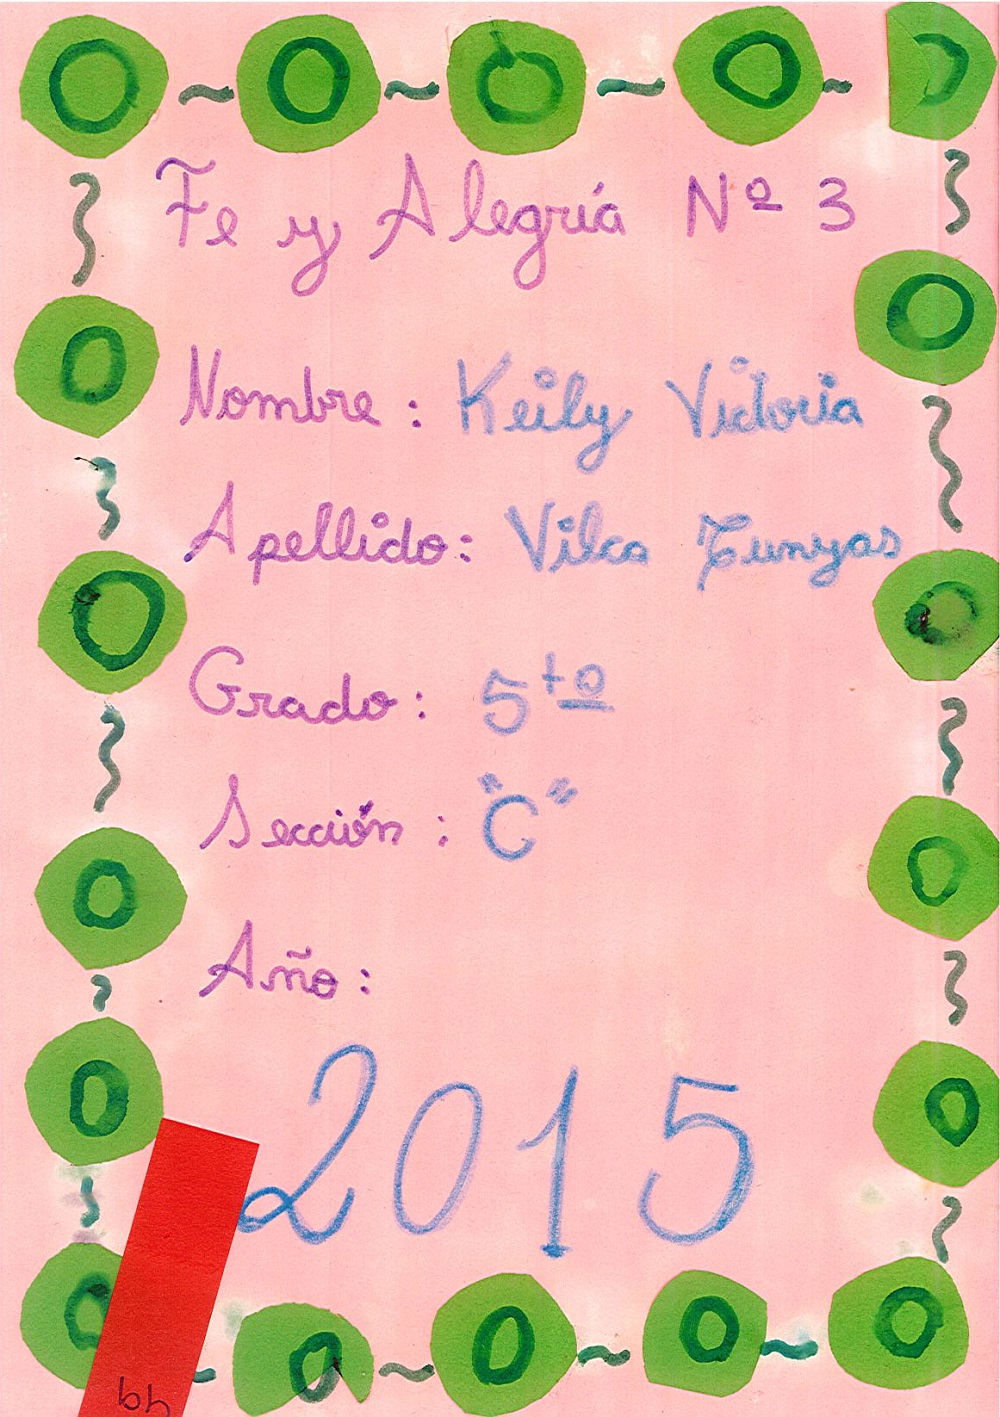 Fe y Alegría Nº 3
Nombre : Keily Victoria
Apellido: Vilca Tunyas
Grado: 5to
Sección : "C"
Año:
2015